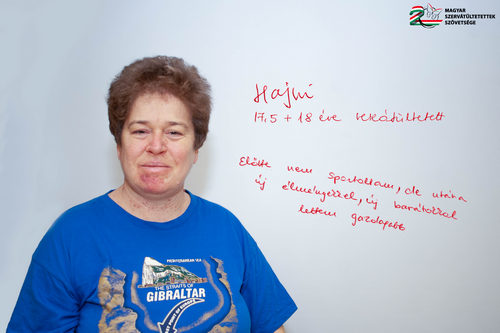 MAGYAR
SZERVÁTÜLTETETTEK
SZÖVETSÉGE
Hajni
17,5 + 18 éve veseátültetett
Előtte nem sportoltam, de utána
új élményekkel, új barátokkal
lettem gazdagabb
MEDITERRANEAN SEA
THE STRAITS OF
GIBRALTAR